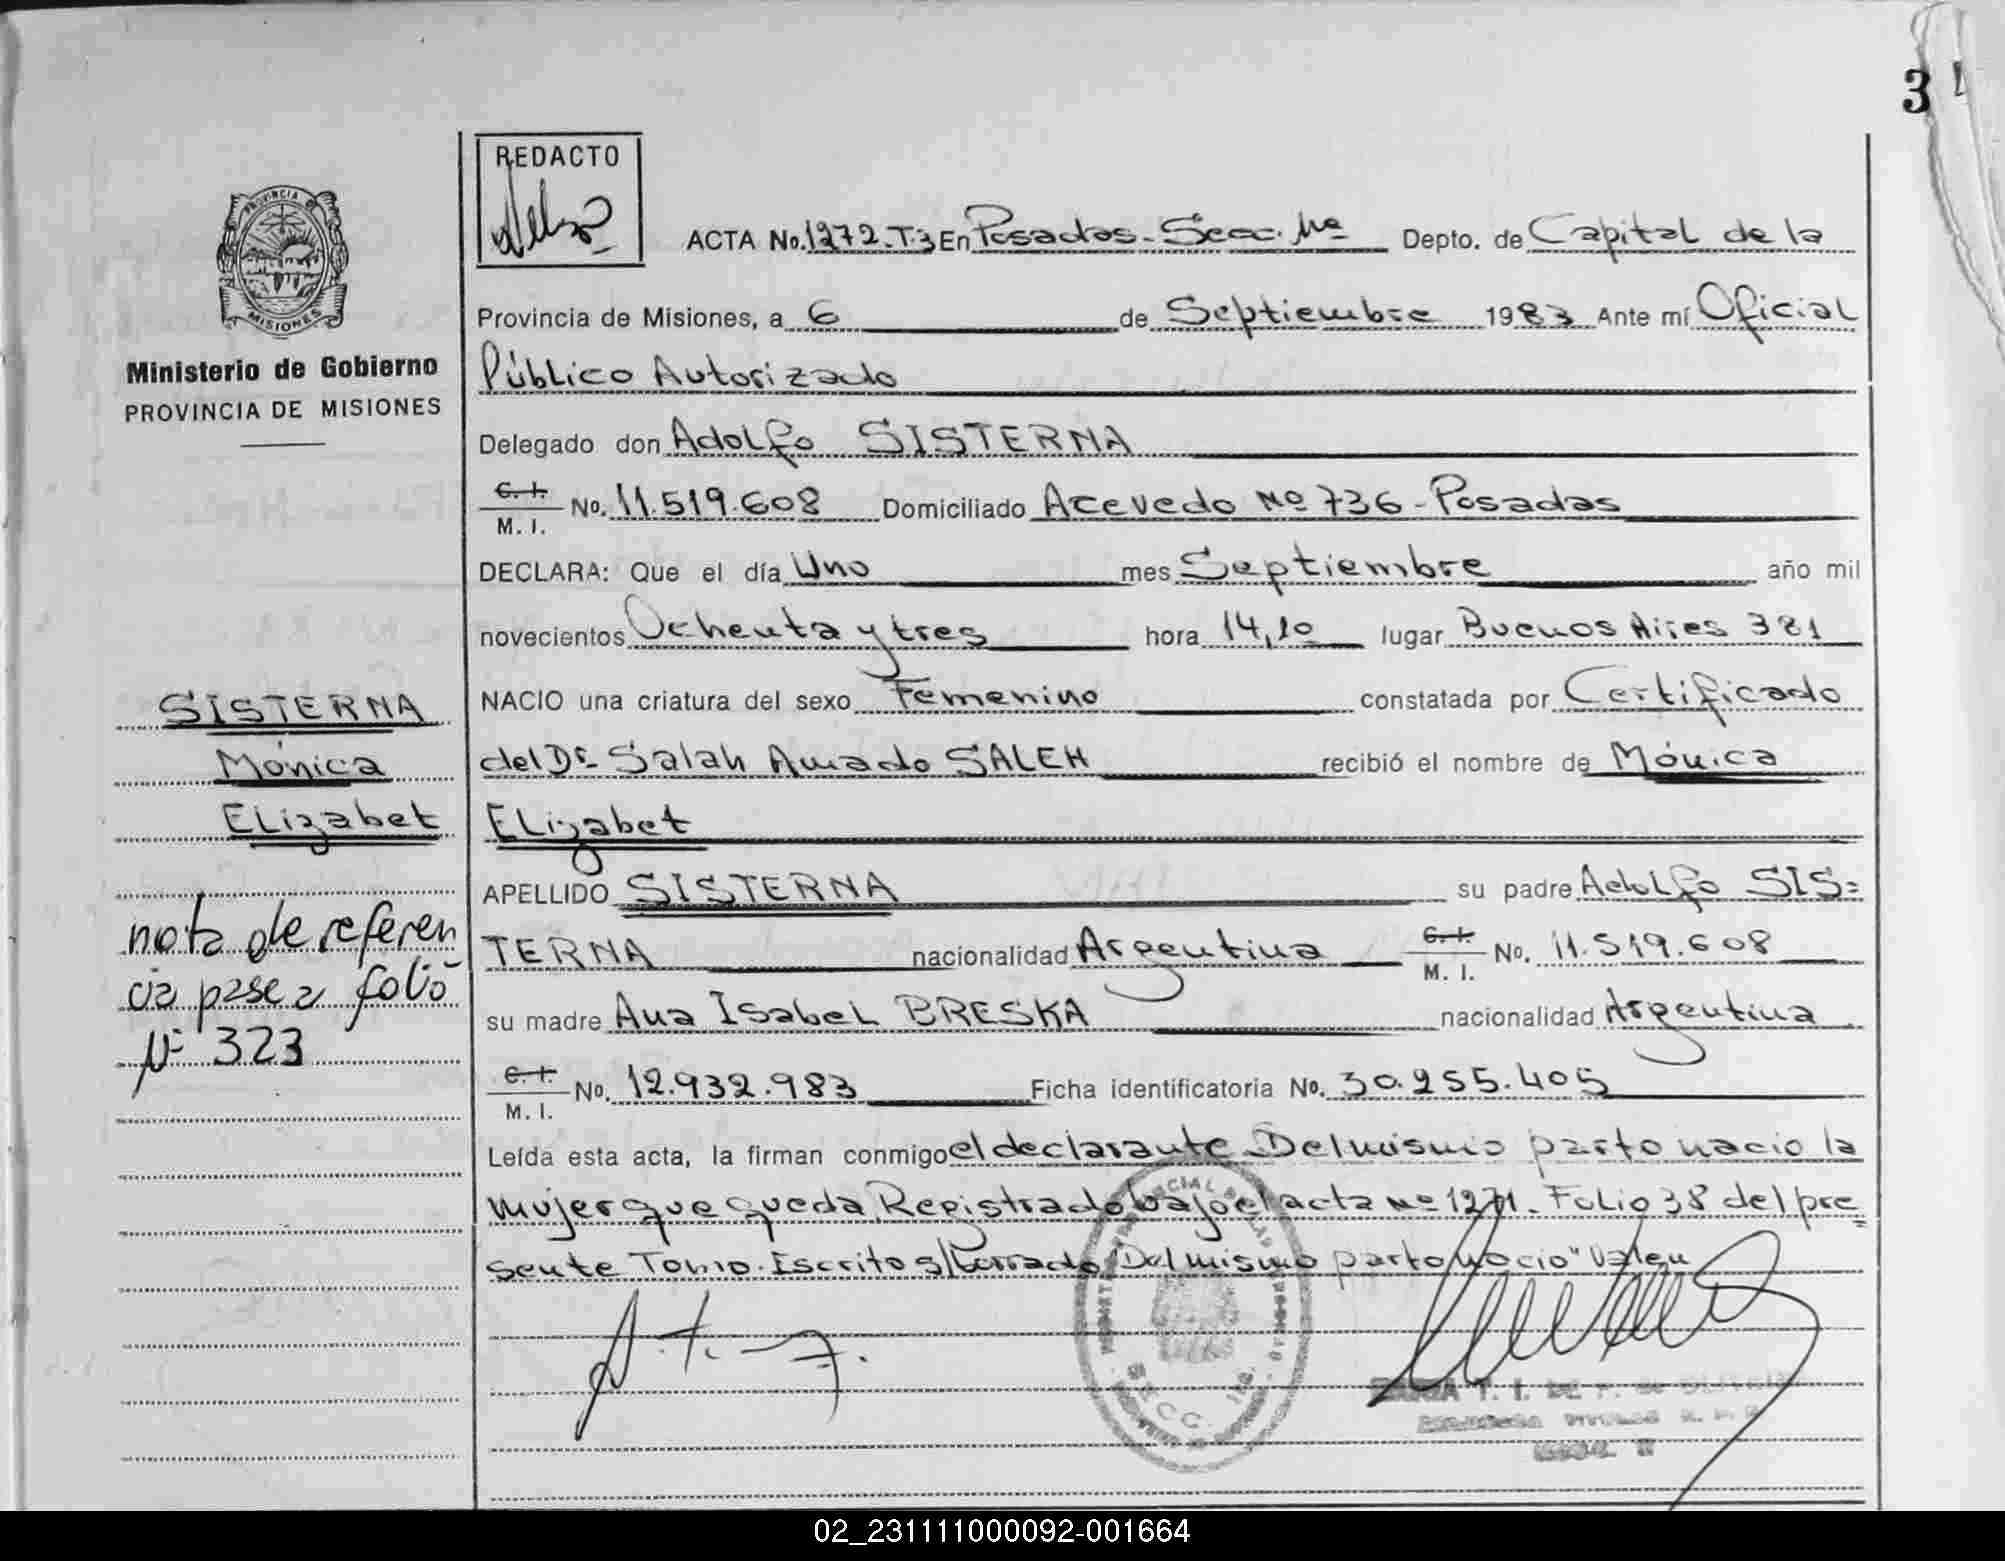 3
REDACTO
PROVINCIA DE
MISIONES
Ministerio de Gobierno
PROVINCIA DE MISIONES
ACTA No. 1272.T.3 En Posadas-Secc. 11ª Depto. de Capital de la
Provincia de Misiones, a 6 de Septiembre 1983 Ante mí Oficial
Público Autorizado
Delegado don Adolfo SISTERNA
C. I.
M. I. No. 11.519.608 Domiciliado Acevedo Nº 736-Posadas
DECLARA: Que el día Uno mes Septiembre año mil
novecientos Ochenta y tres hora 14,10 lugar Buenos Aires 381
NACIO una criatura del sexo Femenino constatada por Certificado
del Dr. Salah Amado SALEH recibió el nombre de Mónica
Elizabet
APELLIDO SISTERNA su padre Adolfo SIS=
TERNA nacionalidad Argentina C. I.
M. I. No. 11.519.608
su madre Ana Isabel BRESKA nacionalidad Argentina
C. I.
M. I. No. 12.932.983 Ficha identificatoria No. 30.255.405
Leída esta acta, la firman conmigo el declarante Del mismo parto nacio la
mujer que queda Registrado bajo el acta nº 1271. Folio 38 del pre=
sente Tomo. Escrito s/borrado "Del mismo parto nacio" Valen
SISTERNA
Mónica
Elizabet
nota de referen
cia pase a folio
Nº 323
SECC.
02_231111000092-001664